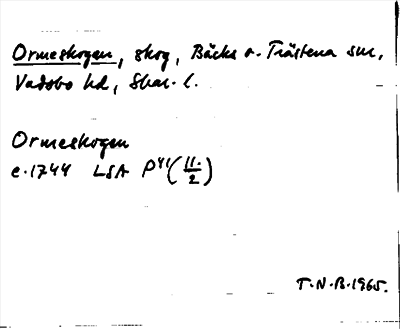 Ormeskogen, skog, Bäcks o. Trästena snr,
Vadsbo hd, Skar. l.
Ormeskogen
c.1744 LSA P41(11:2)
T.N.B.1965.